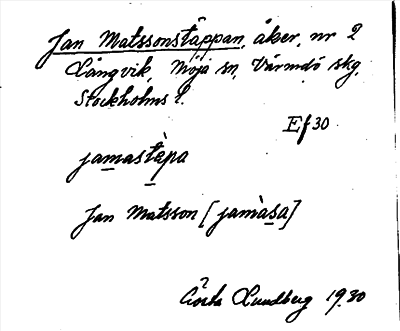 Jan Matssonstäppan, åker, nr 2
Långvik, Möja sn, Värmdö skg,
Stockholms l.
Ef 30
jamastàpa
Jan Matsson [jamàsa]
Gösta Lundberg 1930